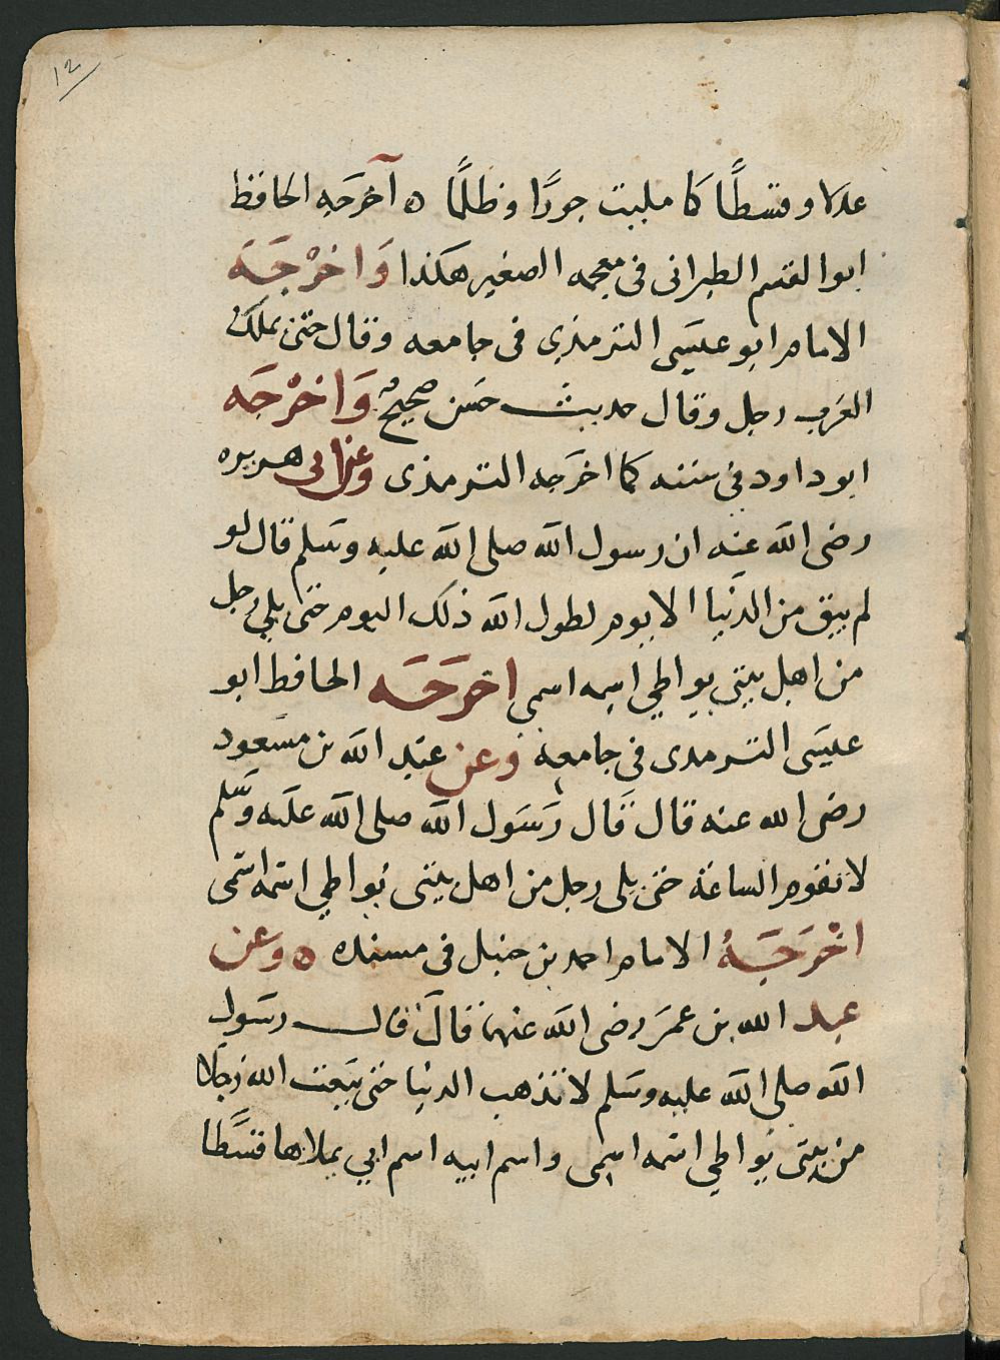 ١٢
عدلا وقسطًا كما ملئت جورًا وظلمًا ه اخرجه الحافظ
ابوا القسم الطبرانى فى معجمه الصغير هكذا وَاخرْجَه
الامام ابو عيسَى الترمذي فى جامعه وقال حتى يملكُ
العَرب رجل وقال حديث حسَن صحيحٌ وَاخرْجَه
ابو داود فى سننه كما اخرَجه الترمذى وعن ابى هريره
رضى الله عنه ان رسول الله صلى الله عليه وسَلم قال لو
لم يبق من الدنيا الا يوم لطول الله ذلك اليوم حتى يلي رجل
من اهل بيتى يواطي اسمه اسمى اخرَجَه الحافظ ابو
عيسَى الترمدى فى جامعه وعن عبد الله بن مسَعود
رضى الله عنه قال قَال رَسَول الله صلى الله علَيه وَسَّلم
لا تقوم الساعة حتى يلى رجل من اهل بيتى يُواطي اسمه اسمى
اخْرَجَهُ الامام احمد بن حنبل فى مسنده ه وَعن
عبد الله بن عمَر رضى الله عنهما قالَ قال رسَول
الله صلى الله عليه وسَلم لا تذهب الدنيا حتى يبَعث الله رَجلا
من بيتى يُواطي اسمه اسمى واسم ابيه اسم ابي يملاها قسَّطا